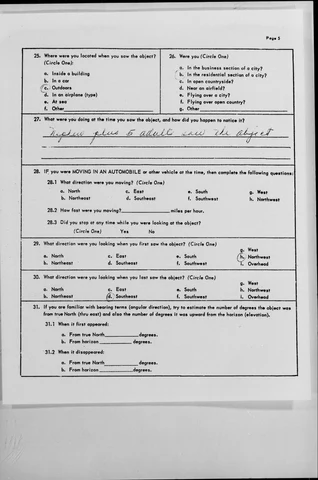 Page 5
25. Where were you located when you saw the object?
(Circle One):
a. Inside a building
b. In a car
c. Outdoors
d. In an airplane (type)
e. At sea
f. Other
26. Were you (Circle One)
a. In the business section of a city?
b. In the residential section of a city?
c. In open countryside?
d. Near an airfield?
e. Flying over a city?
f. Flying over open country?
g. Other
27. What were you doing at the time you saw the object, and how did you happen to notice it?
nephew plus 5 adults saw the object
28. IF, you were MOVING IN AN AUTOMOBILE or other vehicle at the time, then complete the following questions:
28.1 What direction were you moving? (Circle One)
a. North c. East e. South g. West
b. Northeast d. Southeast f. Southwest h. Northwest
28.2 How fast were you moving? miles per hour.
28.3 Did you stop at any time while you were looking at the object?
(Circle One) Yes No
29. What direction were you looking when you first saw the object? (Circle One)
a. North c. East e. South g. West
b. Northeast d. Southeast f. Southwest h. Northwest
i. Overhead
30. What direction were you looking when you last saw the object? (Circle One)
a. North c. East e. South g. West
b. Northeast d. Southeast f. Southwest h. Northwest
i. Overhead
31. If you are familiar with bearing terms (angular direction), try to estimate the number of degrees the object was
from true North (thru east) and also the number of degrees it was upward from the horizon (elevation).
31.1 When it first appeared:
a. From true North degrees.
b. From horizon degrees.
31.2 When it disappeared:
a. From true North degrees.
b. From horizon degrees.